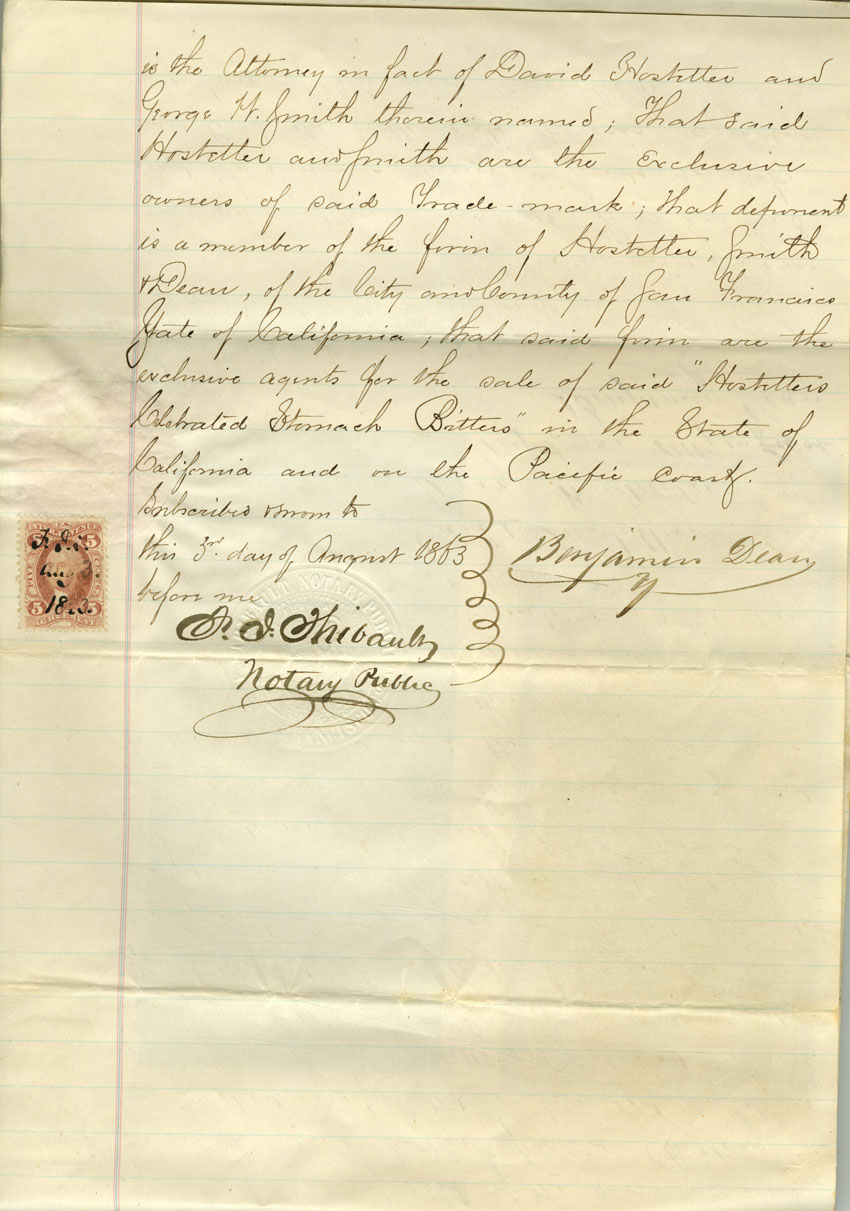 is the Attorney in fact of David Hostetter and
George W. Smith therein named; That said
Hostetter and Smith are the Exclusive
owners of said Trade-mark; that deponent
is a member of the firm of Hostetter, Smith
& Dean, of the City and County of San Francisco
State of California; that said firm are the
exclusive agents for the sale of said "Hostetters
Celebrated Stomach Bitters" in the State of
California and on the Pacific Coast.
Subscribed & sworn to
this 3rd. day of August 1863
before me
Benjamin Dean
F. J. Thibault
Notary Public
5 5
F. J. T.
Aug 3.
1863.
5 5
AGREEMENT
NOTARY PUBLIC